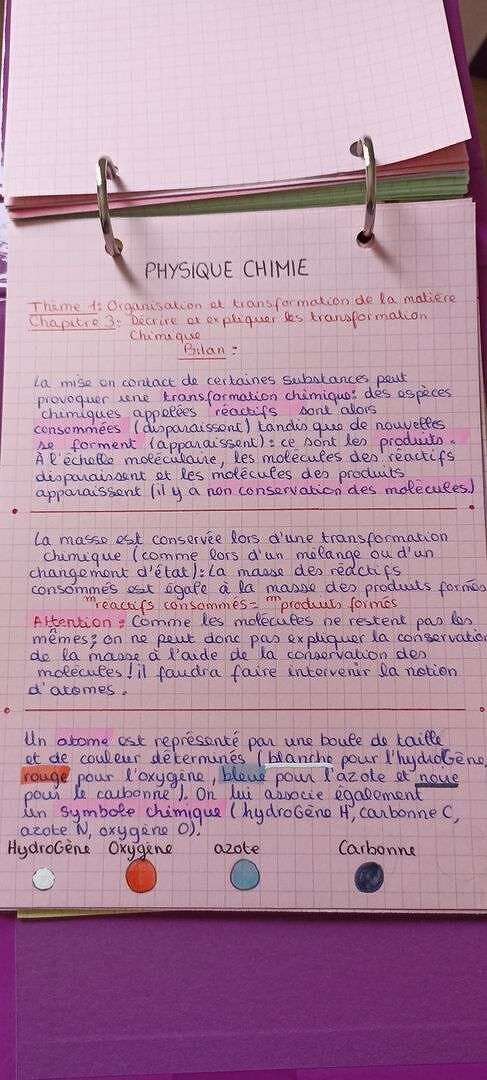 PHYSIQUE CHIMIE
Thème 1: Organisation et transformation de la matière
Chapitre 3: Décrire et expliquer les transformation
Chimique
Bilan :
La mise en contact de certaines substances peut
provoquer une transformation chimique: des espèces
chimiques appelées réactifs sont alors
consommées (disparaissent) tandis que de nouvelles
se forment (apparaissent): ce sont les produits.
À l'échelle moléculaire, les molécules des réactifs
disparaissent et les molécules des produits
apparaissent (il y a non conservation des molécules)
La masse est conservée lors d'une transformation
chimique (comme lors d'un mélange ou d'un
changement d'état): La masse des réactifs
consommés est égale à la masse des produits formés
m réactifs consommés = m produits formés
Attention : Comme les molécules ne restent pas les
mêmes; on ne peut donc pas expliquer la conservation
de la masse à l'aide de la conservation des
molécules! il faudra faire intervenir la notion
d'atomes.
Un atome est représenté par une boule de taille
et de couleur déterminés (blanche pour l'hydroGène,
rouge pour l'oxygène, bleue pour l'azote et noue
pour le carbonne). On lui associe également
un symbole chimique (hydroGène H, carbonne C,
azote N, oxygène O).
HydroGène Oxygène azote Carbonne